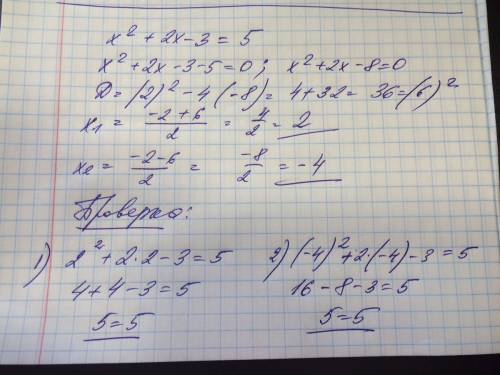 x² + 2x - 3 = 5
x² + 2x - 3 - 5 = 0; x² + 2x - 8 = 0
D = (2)² - 4 (-8) = 4 + 32 = 36 = (6)²
x₁ = (-2 + 6)/2 = 4/2 = 2
x₂ = (-2 - 6)/2 = -8/2 = -4
Проверка:
1) 2² + 2 · 2 - 3 = 5 2) (-4)² + 2 · (-4) - 3 = 5
4 + 4 - 3 = 5 16 - 8 - 3 = 5
5 = 5 5 = 5